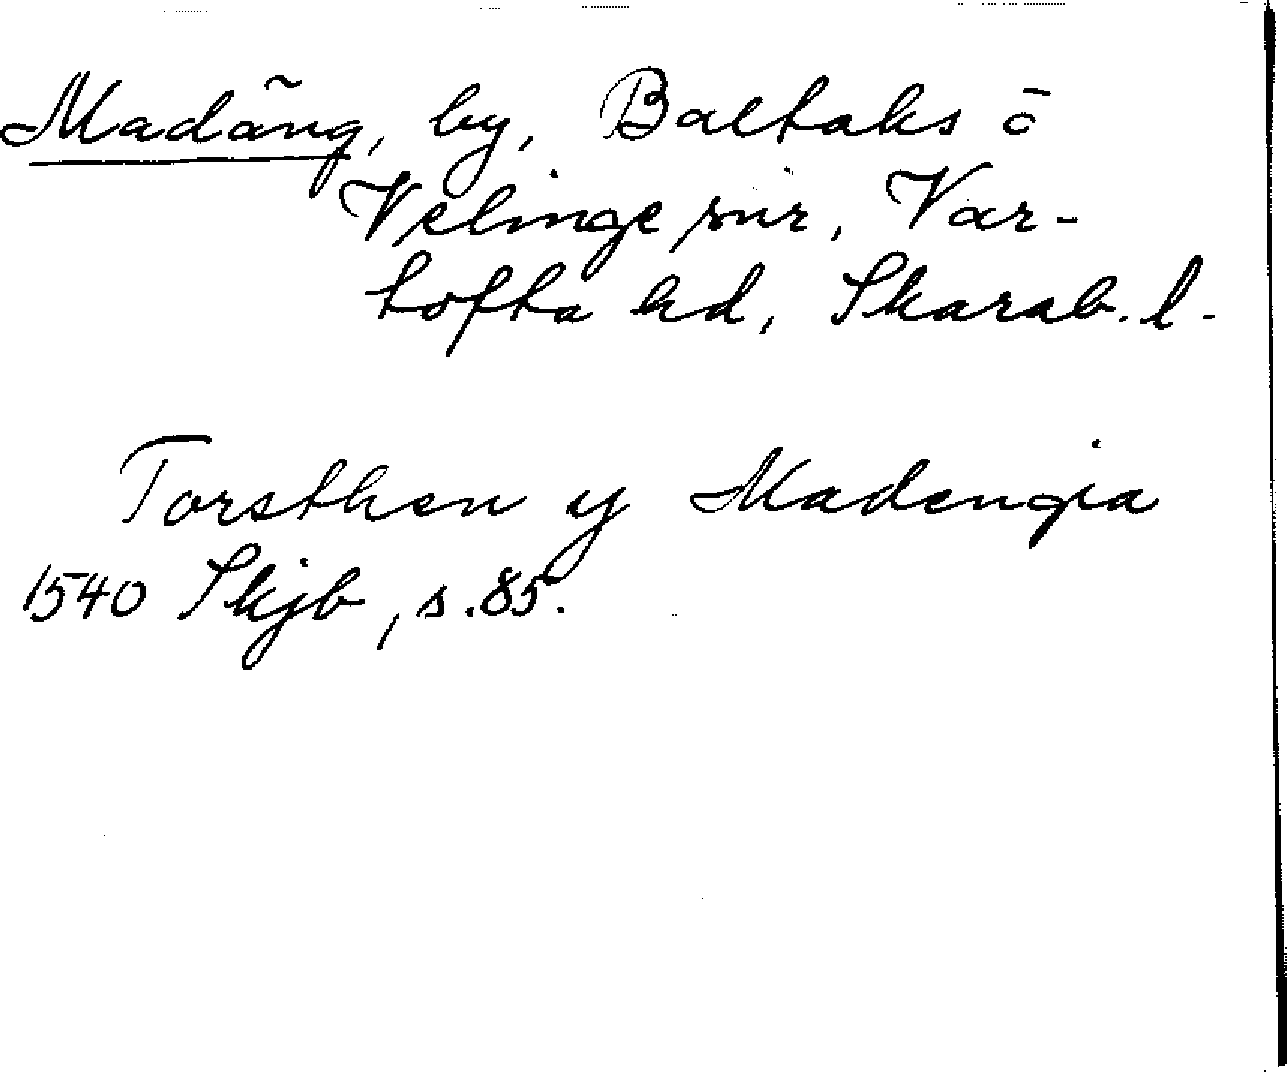 Madäng, by, Baltaks o
Velinge snr, Var-
tofta hd, Skarab. l.
Torsthen y Madengia
1540 Skjb, s. 85.